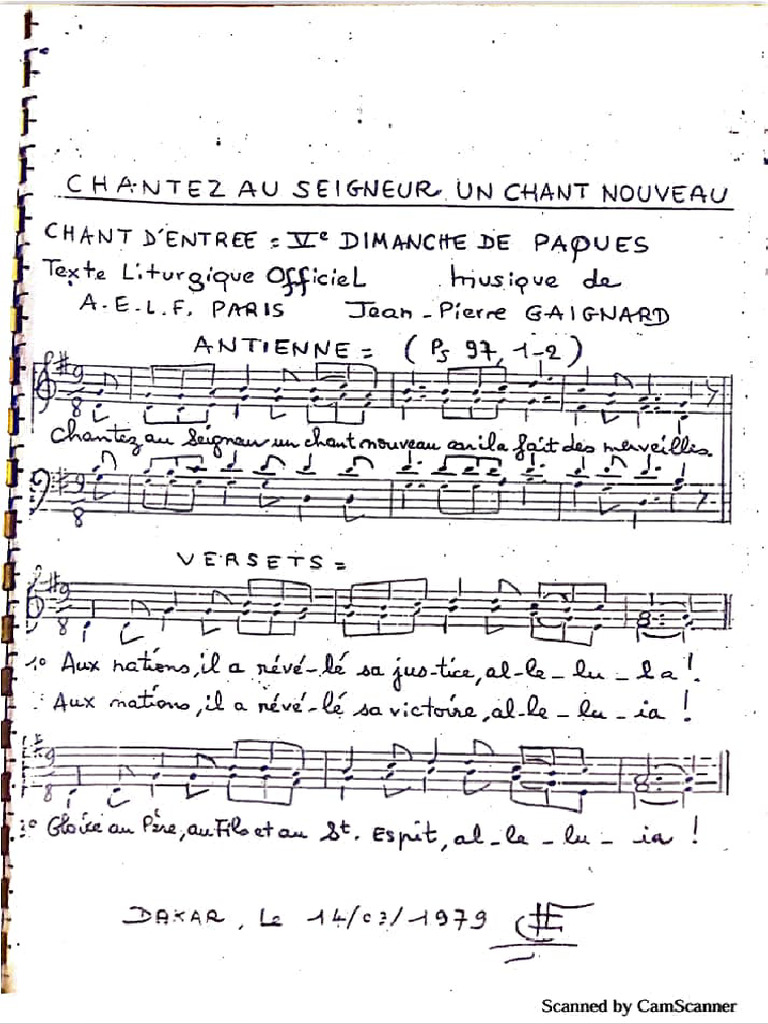 CHANTEZ AU SEIGNEUR UN CHANT NOUVEAU
CHANT D'ENTREE = Vᵉ DIMANCHE DE PAQUES
Texte Liturgique Officiel musique de
A.E.L.F. PARIS Jean-Pierre GAIGNARD
ANTIENNE = (Ps 97, 1-2)
9
8
Chantez au Seigneur un chant nouveau car il a fait des merveilles.
9
8
VERSETS =
9
8
1° Aux nations, il a révé-lé sa jus-tice, al-le-lu-ia!
Aux nations, il a révé-lé sa victoire, al-le-lu-ia!
9
8
Gloire au Père, au Fils et au St. Esprit, al-le-lu-ia!
DAKAR, Le 14/03/1979
Scanned by CamScanner